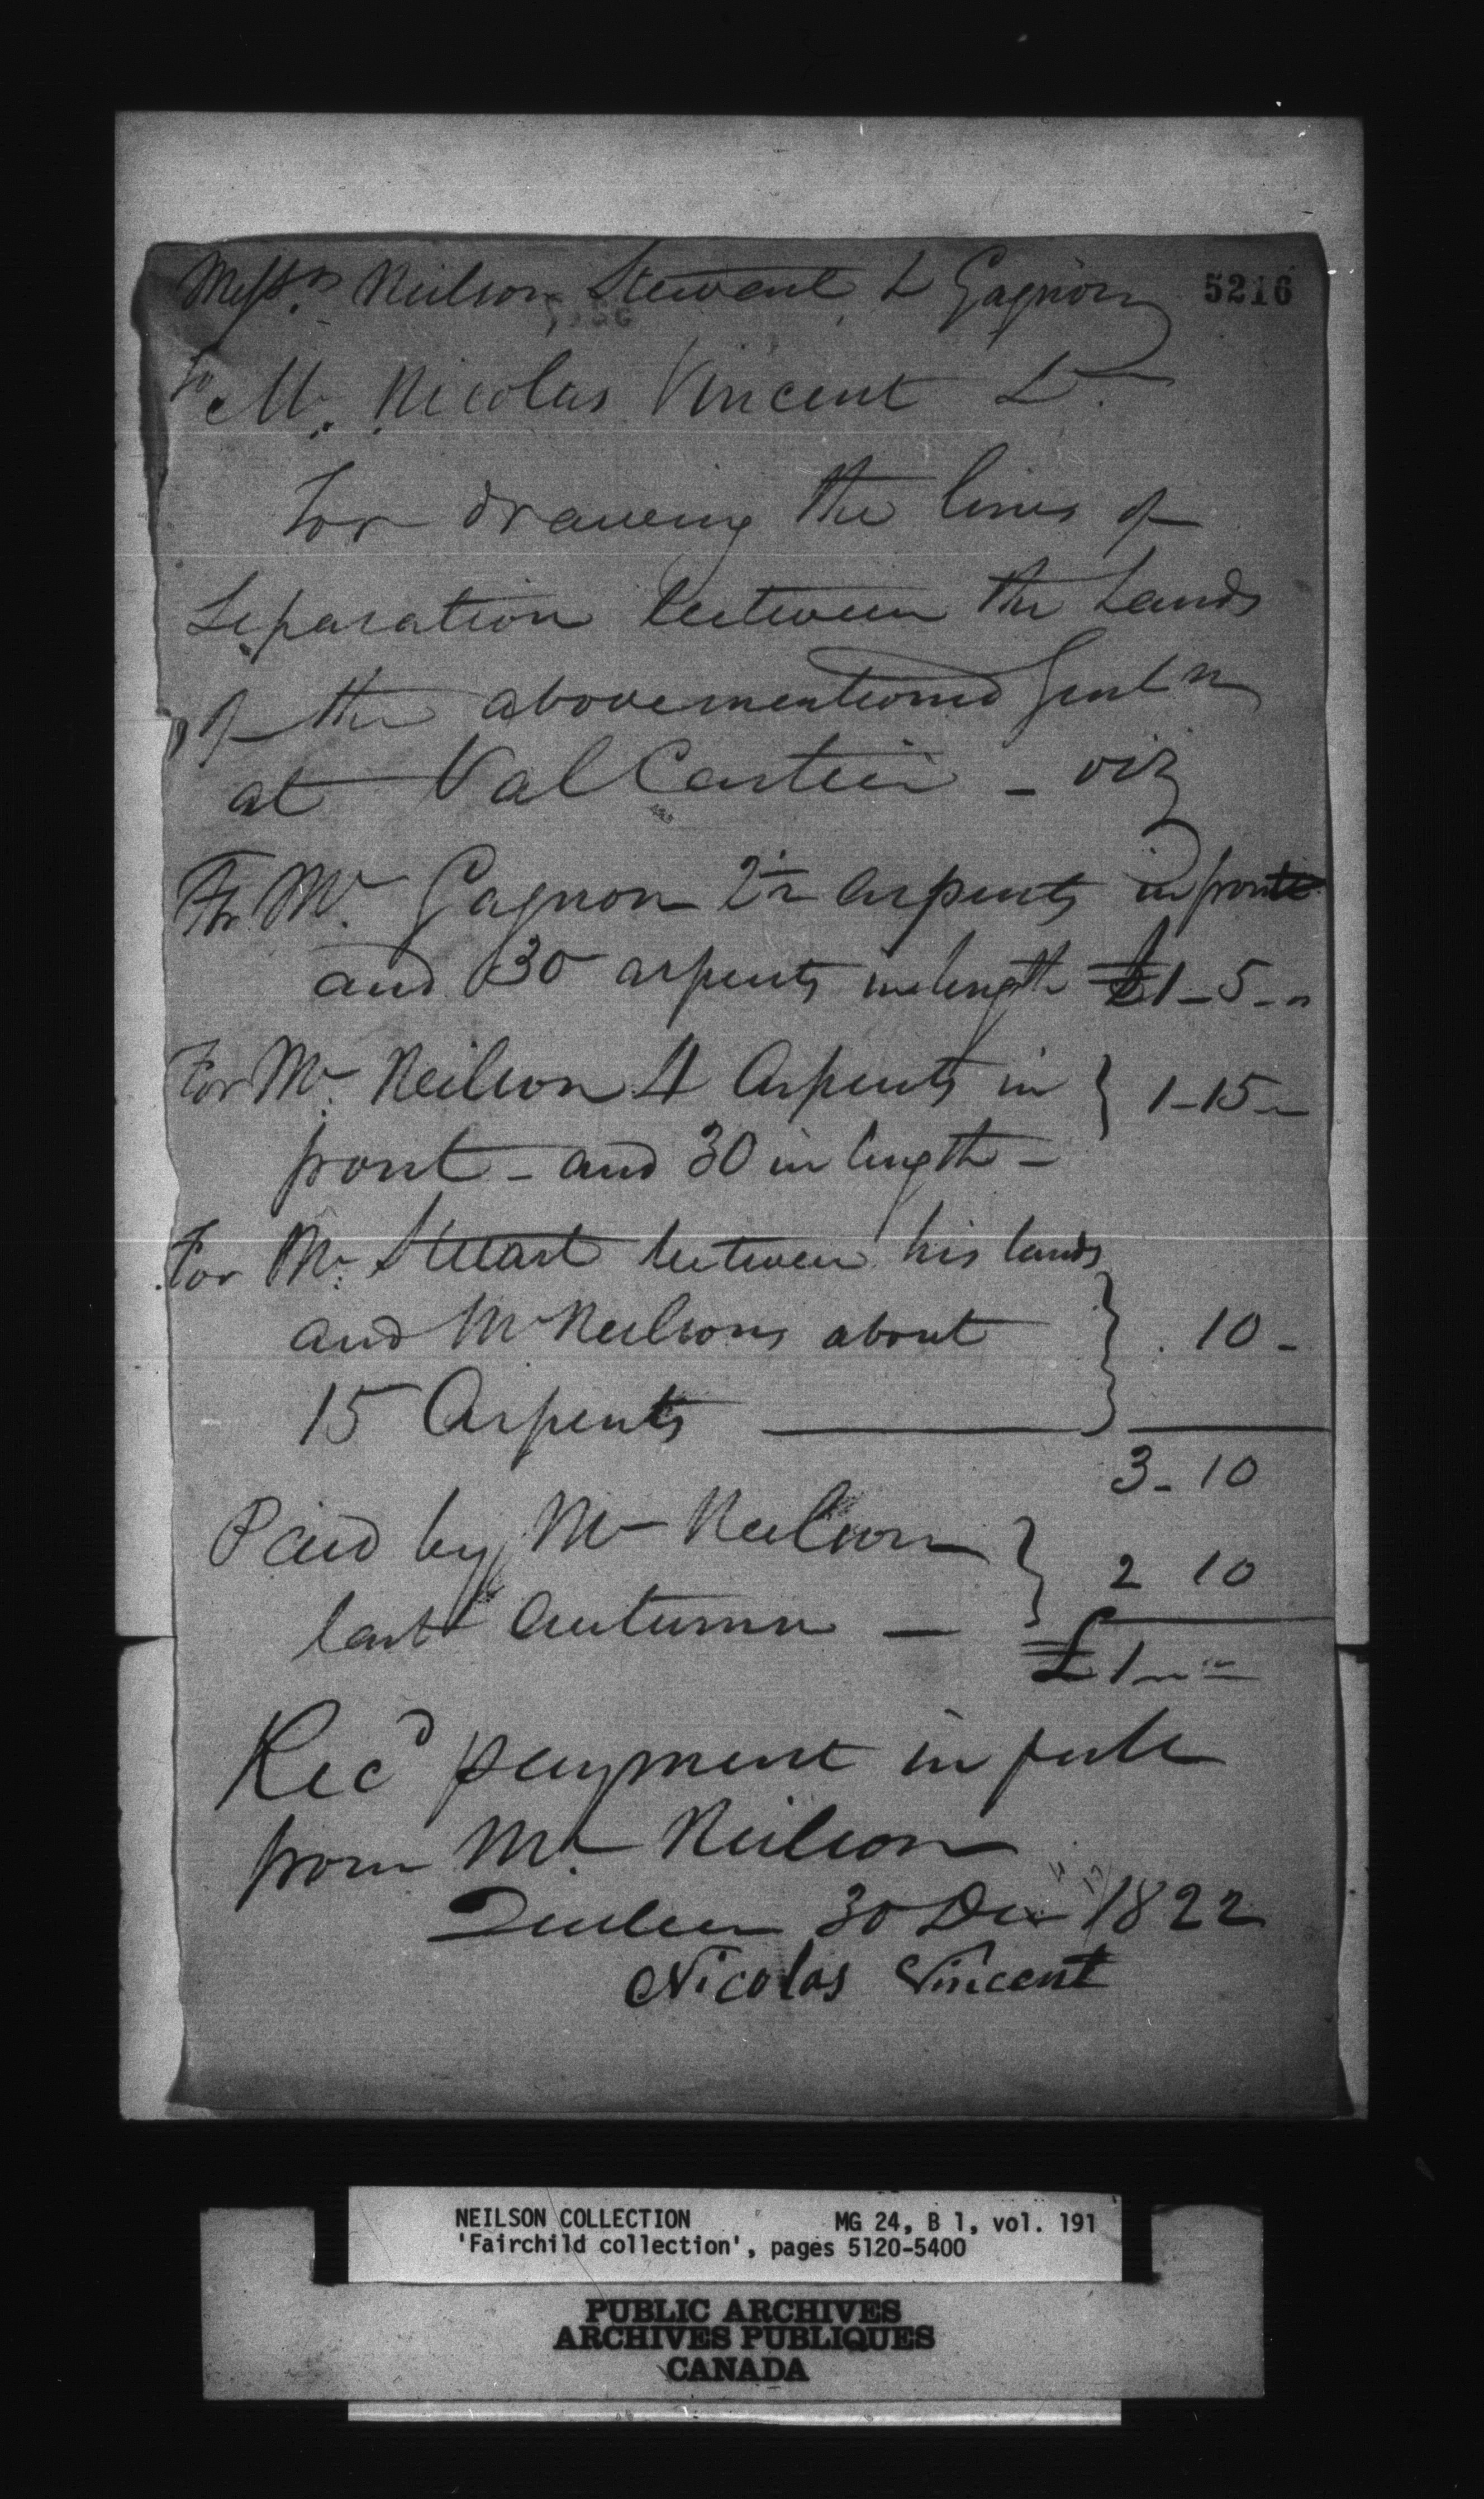 Messrs. Neilson, Stewart & Gagnon
5216
To Mr. Nicolas Vincent Dr.
For drawing the lines of
Separation between the Lands
of the abovementioned Gentn
at Val Cartier - viz
For Mr. Gagnon 2½ Arpents in front
and 30 arpents in length £1-5--
For Mr. Neilson 4 Arpents in } 1-15-
front - and 30 in length -
For Mr. Steuart between his lands
and Mr Neilsons about } 10-
15 Arpents
3-10
Paid by Mr Neilson } 2 10
last Autumn —
£1--
Recd payment in full
from Mr. Neilson
Quebec 30 Decr 1822
Nicolas Vincent
NEILSON COLLECTION MG 24, B 1, vol. 191
'Fairchild collection', pages 5120-5400
PUBLIC ARCHIVES
ARCHIVES PUBLIQUES
CANADA